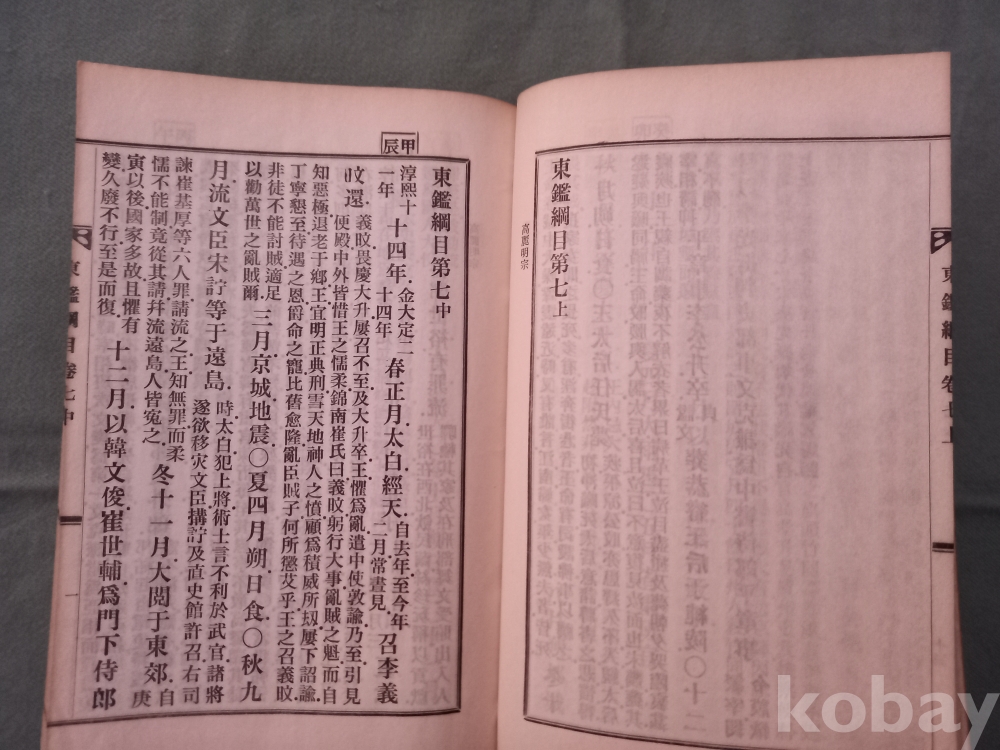 東鑑綱目卷七上
東鑑綱目第七上
高麗明宗
甲辰
東鑑綱目第七中
淳熙十一年 十四年 金大定二十四年 春正月太白經天 自去年至今年二月常晝見 召李義
旼還 義旼畏慶大升屢召不至及大升卒王懼爲亂遣中使敦諭乃至引見便殿中外皆惜王之懦柔錦南崔氏曰義旼躬行大事亂賊之魁而自
知惡極退老于鄉王宜明正典刑雪天地神人之憤顧爲積威所刼屢下詔諭丁寧懇至待遇之恩爵命之寵比舊愈隆亂臣賊子何所懲艾乎王之召義旼
非徒不能討賊適足以勸萬世之亂賊爾 三月京城地震〇夏四月朔日食〇秋九
月流文臣宋詝等于遠島 時太白犯上將術士言不利於武官諸將遂欲移灾文臣搆詝及直史館許召右司
諫崔基厚等六人罪請流之王知無罪而柔懦不能制竟從其請幷流遠島人皆寃之 冬十一月大閱于東郊 自庚
寅以後國家多故且懼有變久廢不行至是而復 十二月以韓文俊崔世輔爲門下侍郞
東鑑綱目卷七中
一
kobay